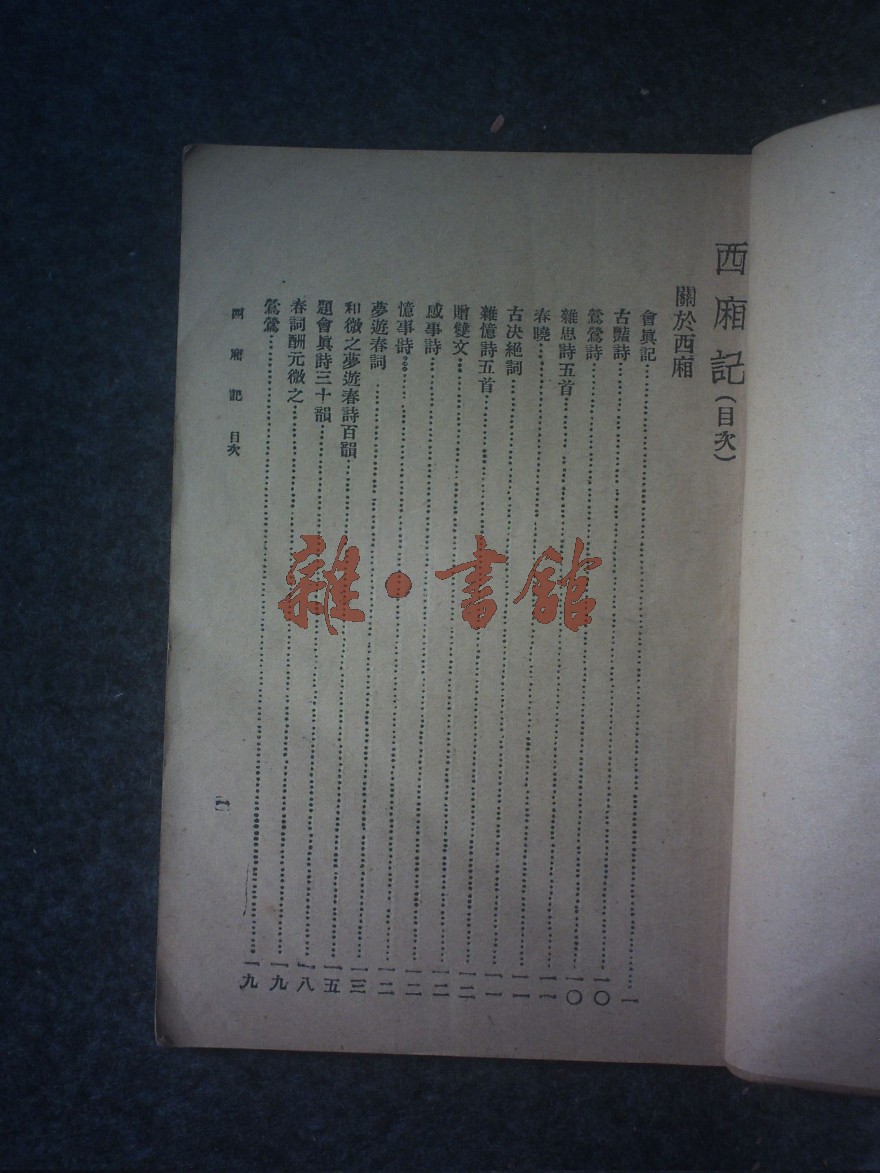 西廂記(目次)
關於西廂
會眞記……一
古豔詩……一〇
鶯鶯詩……一〇
雜思詩五首……一一
春曉……一一
古决絕詞……一一
雜憶詩五首……一二
贈雙文……一二
感事詩……一二
憶事詩……一二
夢遊春詞……一三
和微之夢遊春詩百韻……一五
題會眞詩三十韻……一八
春詞酬元微之……一九
鶯鶯……一九
西廂記 目次
雜·書館